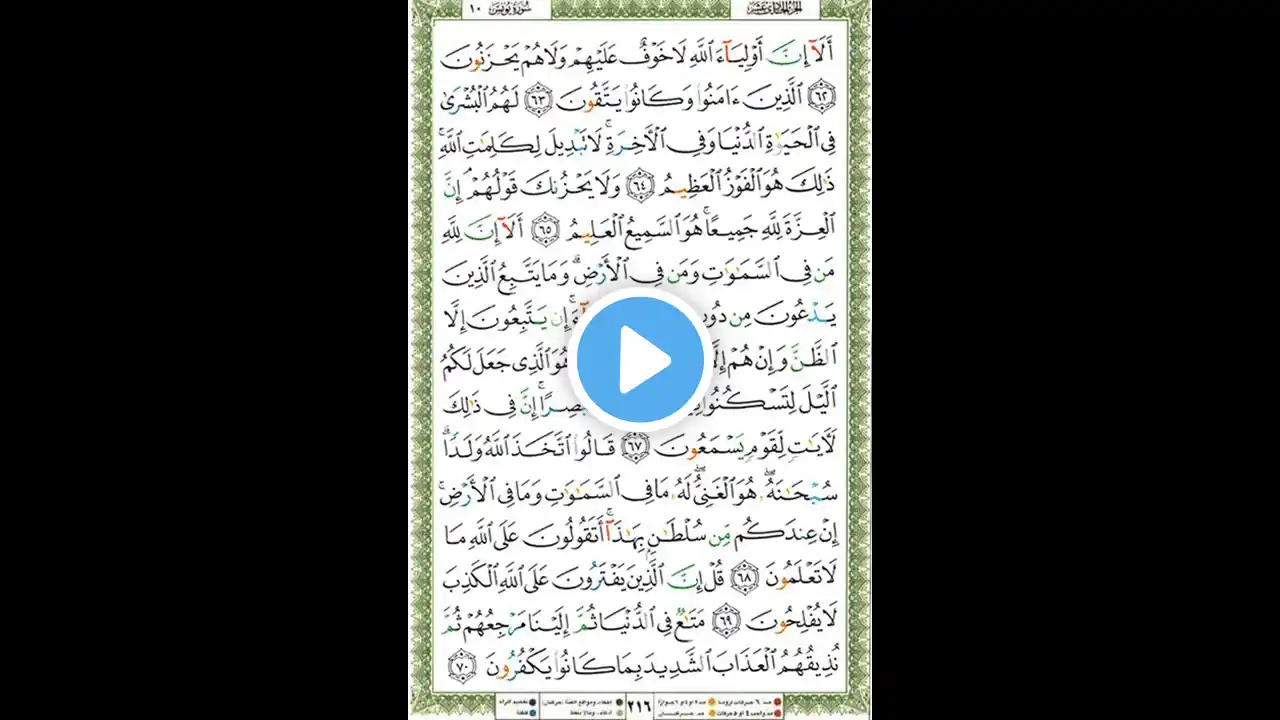 سُورَةُ يُونُسَ ١٠
الجزء الحادي عشر
أَلَآ إِنَّ أَوْلِيَآءَ ٱللَّهِ لَا خَوْفٌ عَلَيْهِمْ وَلَا هُمْ يَحْزَنُونَ
٦٢ ٱلَّذِينَ ءَامَنُوا۟ وَكَانُوا۟ يَتَّقُونَ ٦٣ لَهُمُ ٱلْبُشْرَىٰ
فِى ٱلْحَيَوٰةِ ٱلدُّنْيَا وَفِى ٱلْـَٔاخِرَةِ ۚ لَا تَبْدِيلَ لِكَلِمَـٰتِ ٱللَّهِ ۚ
ذَٰلِكَ هُوَ ٱلْفَوْزُ ٱلْعَظِيمُ ٦٤ وَلَا يَحْزُنكَ قَوْلُهُمْ ۘ إِنَّ
ٱلْعِزَّةَ لِلَّهِ جَمِيعًا ۚ هُوَ ٱلسَّمِيعُ ٱلْعَلِيمُ ٦٥ أَلَآ إِنَّ لِلَّهِ
مَن فِى ٱلسَّمَـٰوَٰتِ وَمَن فِى ٱلْأَرْضِ ۗ وَمَا يَتَّبِعُ ٱلَّذِينَ
يَدْعُونَ مِن دُونِ ءَ ۚ إِن يَتَّبِعُونَ إِلَّا
ٱلظَّنَّ وَإِنْ هُمْ إِلَّا هُوَ ٱلَّذِى جَعَلَ لَكُمُ
ٱلَّيْلَ لِتَسْكُنُوا۟ مُبْصِرًا ۚ إِنَّ فِى ذَٰلِكَ
لَـَٔايَـٰتٍ لِّقَوْمٍ يَسْمَعُونَ ٦٧ قَالُوا۟ ٱتَّخَذَ ٱللَّهُ وَلَدًا ۗ
سُبْحَـٰنَهُۥ ۖ هُوَ ٱلْغَنِىُّ ۖ لَهُۥ مَا فِى ٱلسَّمَـٰوَٰتِ وَمَا فِى ٱلْأَرْضِ ۚ
إِنْ عِندَكُم مِّن سُلْطَـٰنٍۭ بِهَـٰذَآ ۚ أَتَقُولُونَ عَلَى ٱللَّهِ مَا
لَا تَعْلَمُونَ ٦٨ قُلْ إِنَّ ٱلَّذِينَ يَفْتَرُونَ عَلَى ٱللَّهِ ٱلْكَذِبَ
لَا يُفْلِحُونَ ٦٩ مَتَـٰعٌ فِى ٱلدُّنْيَا ثُمَّ إِلَيْنَا مَرْجِعُهُمْ ثُمَّ
نُذِيقُهُمُ ٱلْعَذَابَ ٱلشَّدِيدَ بِمَا كَانُوا۟ يَكْفُرُونَ ٧٠
٢١٦